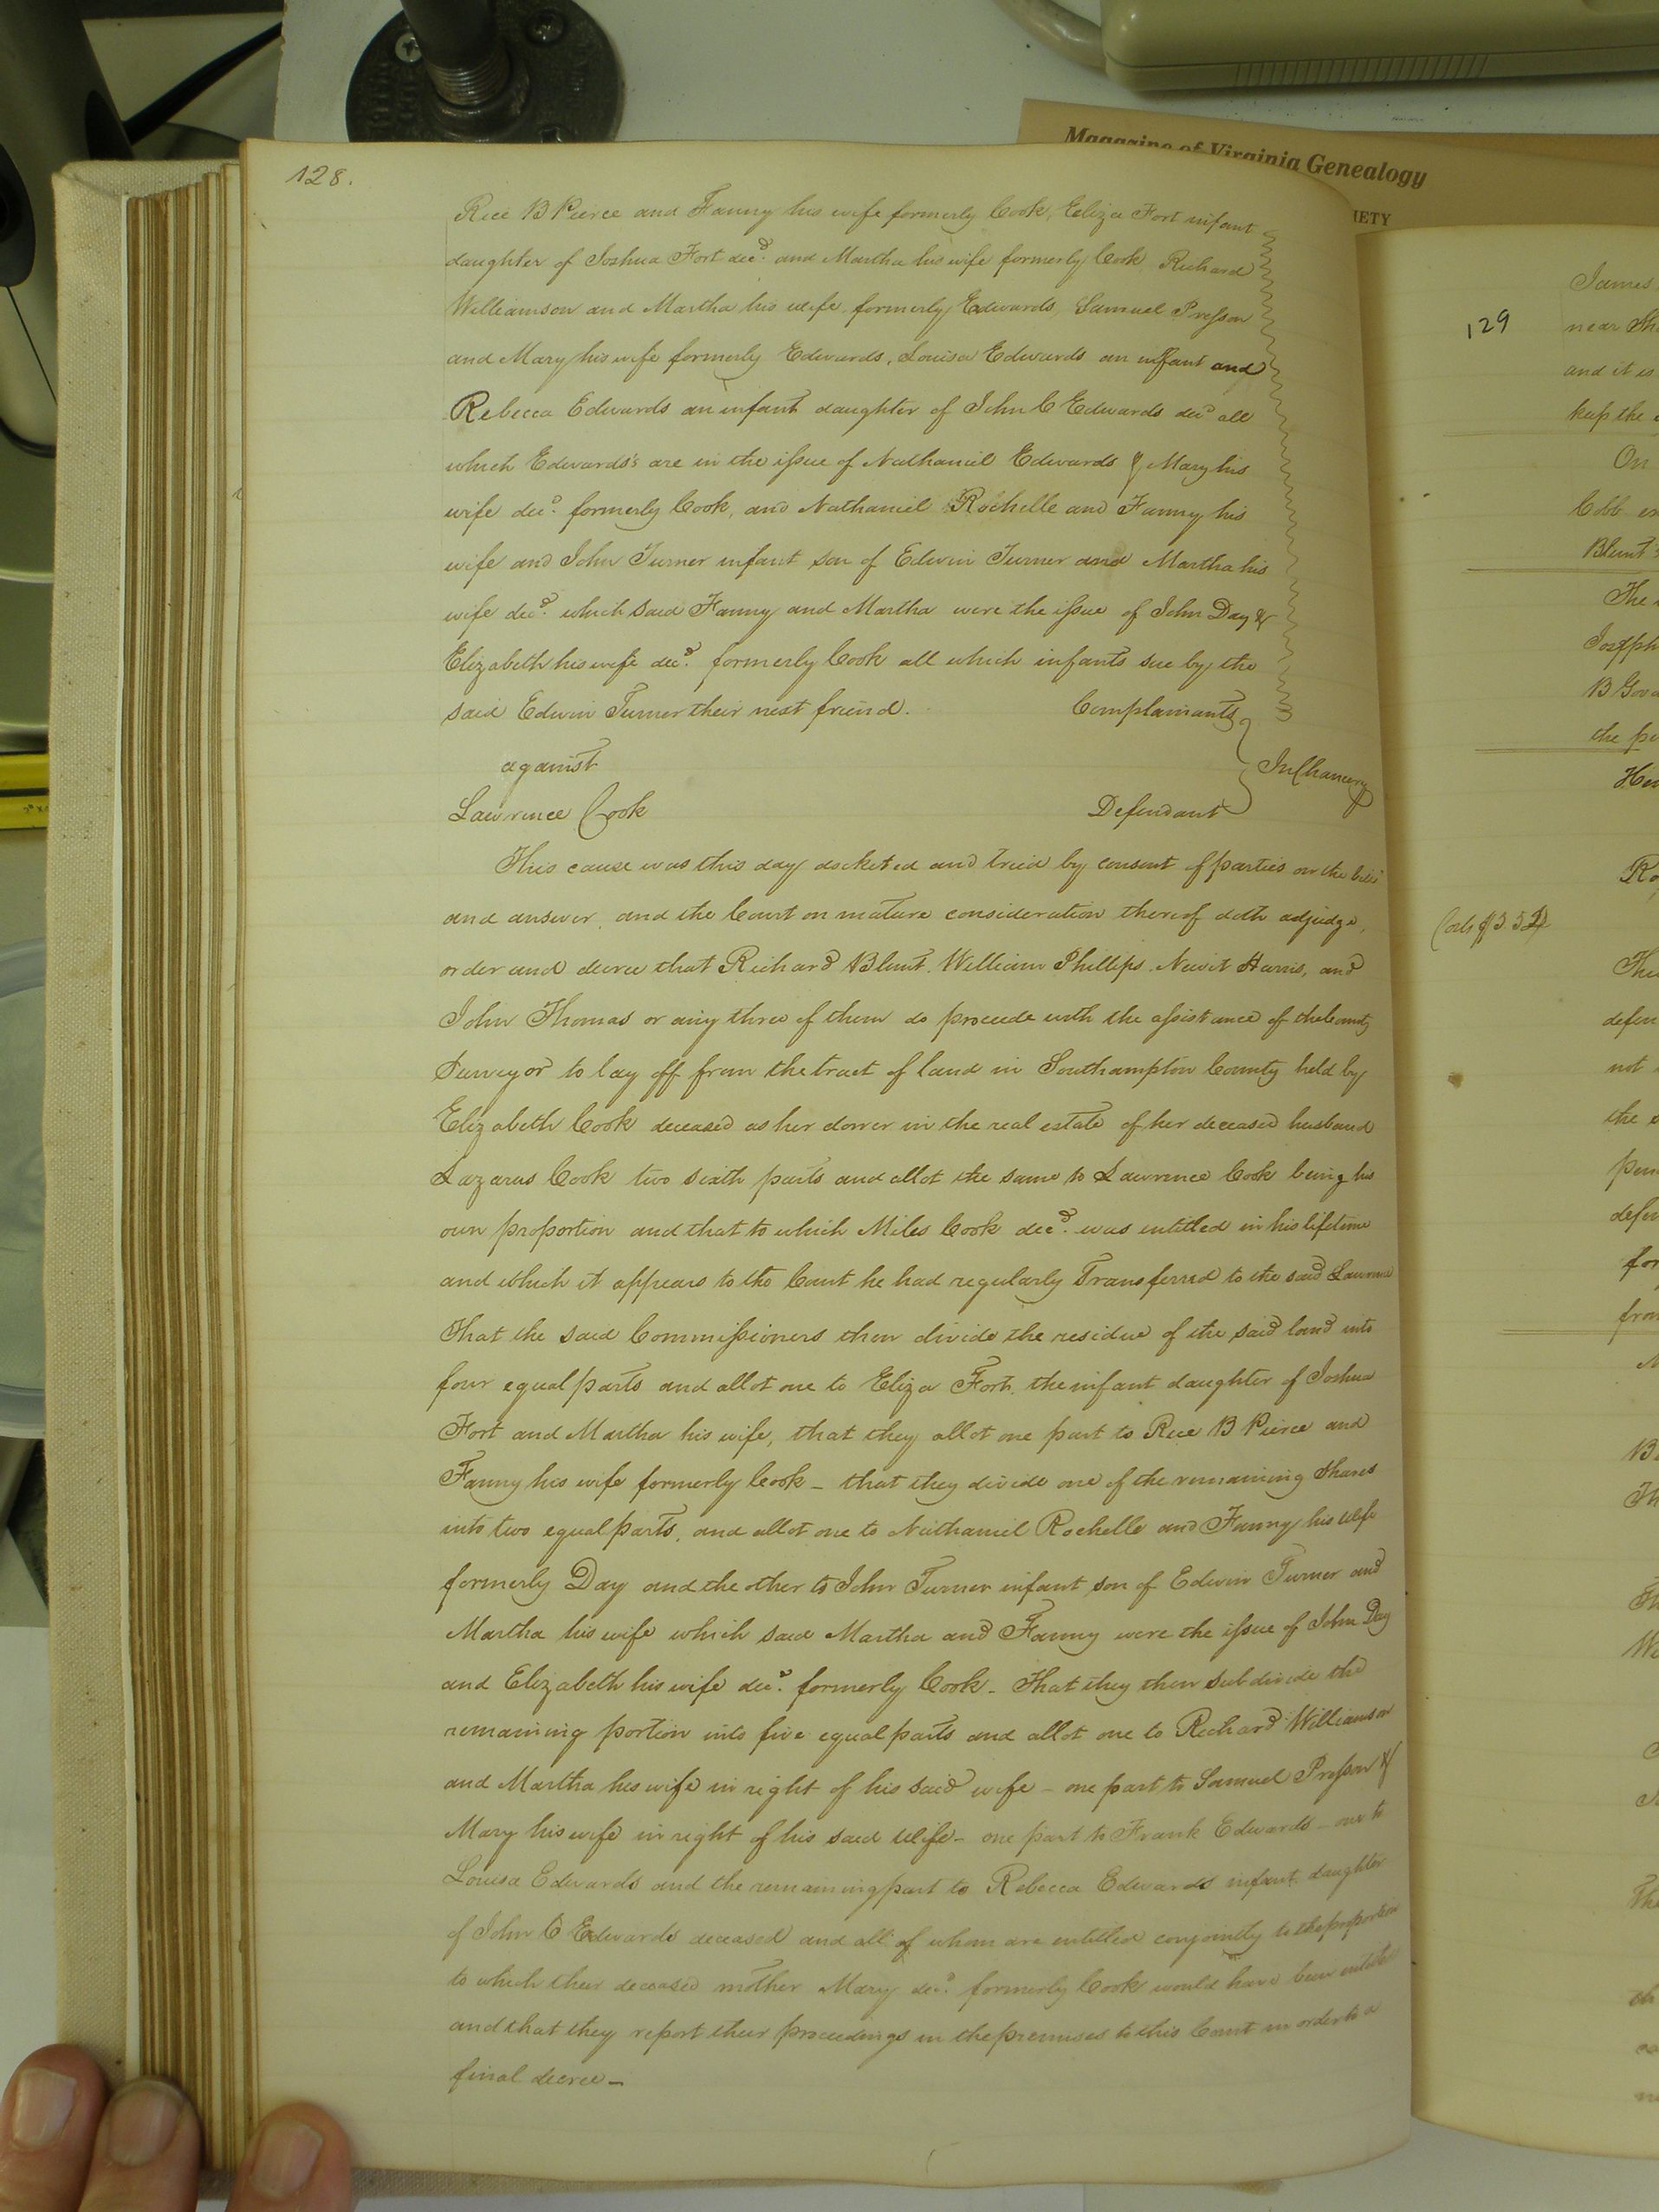 Magazine of Virginia Genealogy
IETY
128.
Rice B Pierce and Fanny his wife formerly Cook, Eliza Fort infant
daughter of Joshua Fort decd. and Martha his wife formerly Cook Richard
Williamson and Martha his wife formerly Edwards, Samuel Presson
and Mary his wife formerly Edwards, Louisa Edwards an infant and
Rebecca Edwards an infant daughter of John C Edwards decd all
which Edwards's are in the issue of Nathaniel Edwards & Mary his
wife decd. formerly Cook, and Nathaniel Rochelle and Fanny his
wife and John Turner infant son of Edwin Turner and Martha his
wife decd. which said Fanny and Martha were the issue of John Day &
Elizabeth his wife decd. formerly Cook all which infants sue by the
said Edwin Turner their next friend. Complainants
against
In Chancery
Lawrence Cook Defendant
This cause was this day docketed and tried by consent of parties on the bill
and answer, and the Court on mature consideration thereof doth adjudge,
order and decree that Richard Blunt, William Phillips, Newit Harris, and
John Thomas or any three of them do proceede with the assistance of the County
Surveyor to lay off from the tract of land in Southampton County held by
Elizabeth Cook deceased as her dower in the real estate of her deceased husband
Lazarus Cook two sixth parts and allot the same to Lawrence Cook being his
own proportion and that to which Miles Cook decd. was entitled in his lifetime
and which it appears to the Court he had regularly Transferred to the said Lawrence
That the said Commissioners then divide the residue of the said land into
four equal parts and allot one to Eliza Fort, the infant daughter of Joshua
Fort and Martha his wife, that they allot one part to Rice B Pierce and
Fanny his wife formerly Cook – that they divide one of the remaining shares
into two equal parts, and allot one to Nathaniel Rochelle and Fanny his wife
formerly Day and the other to John Turner infant son of Edwin Turner and
Martha his wife which said Martha and Fanny were the issue of John Day
and Elizabeth his wife decd. formerly Cook – That they then subdivide the
remaining portion into five equal parts and allot one to Richard Williamson
and Martha his wife in right of his said wife – one part to Samuel Presson &
Mary his wife in right of his said wife – one part to Frank Edwards – one to
Louisa Edwards and the remaining part to Rebecca Edwards infant daughter
of John C Edwards deceased and all of whom are entitled conjointly to the proportion
to which their deceased mother Mary decd. formerly Cook would have been entitled
and that they report their proceedings in the premises to this Court in order to a
final decree –
129
James
near
and it is
keep the
On
Cobb
Blunt
The
Joseph
B
the
not
the
for
from